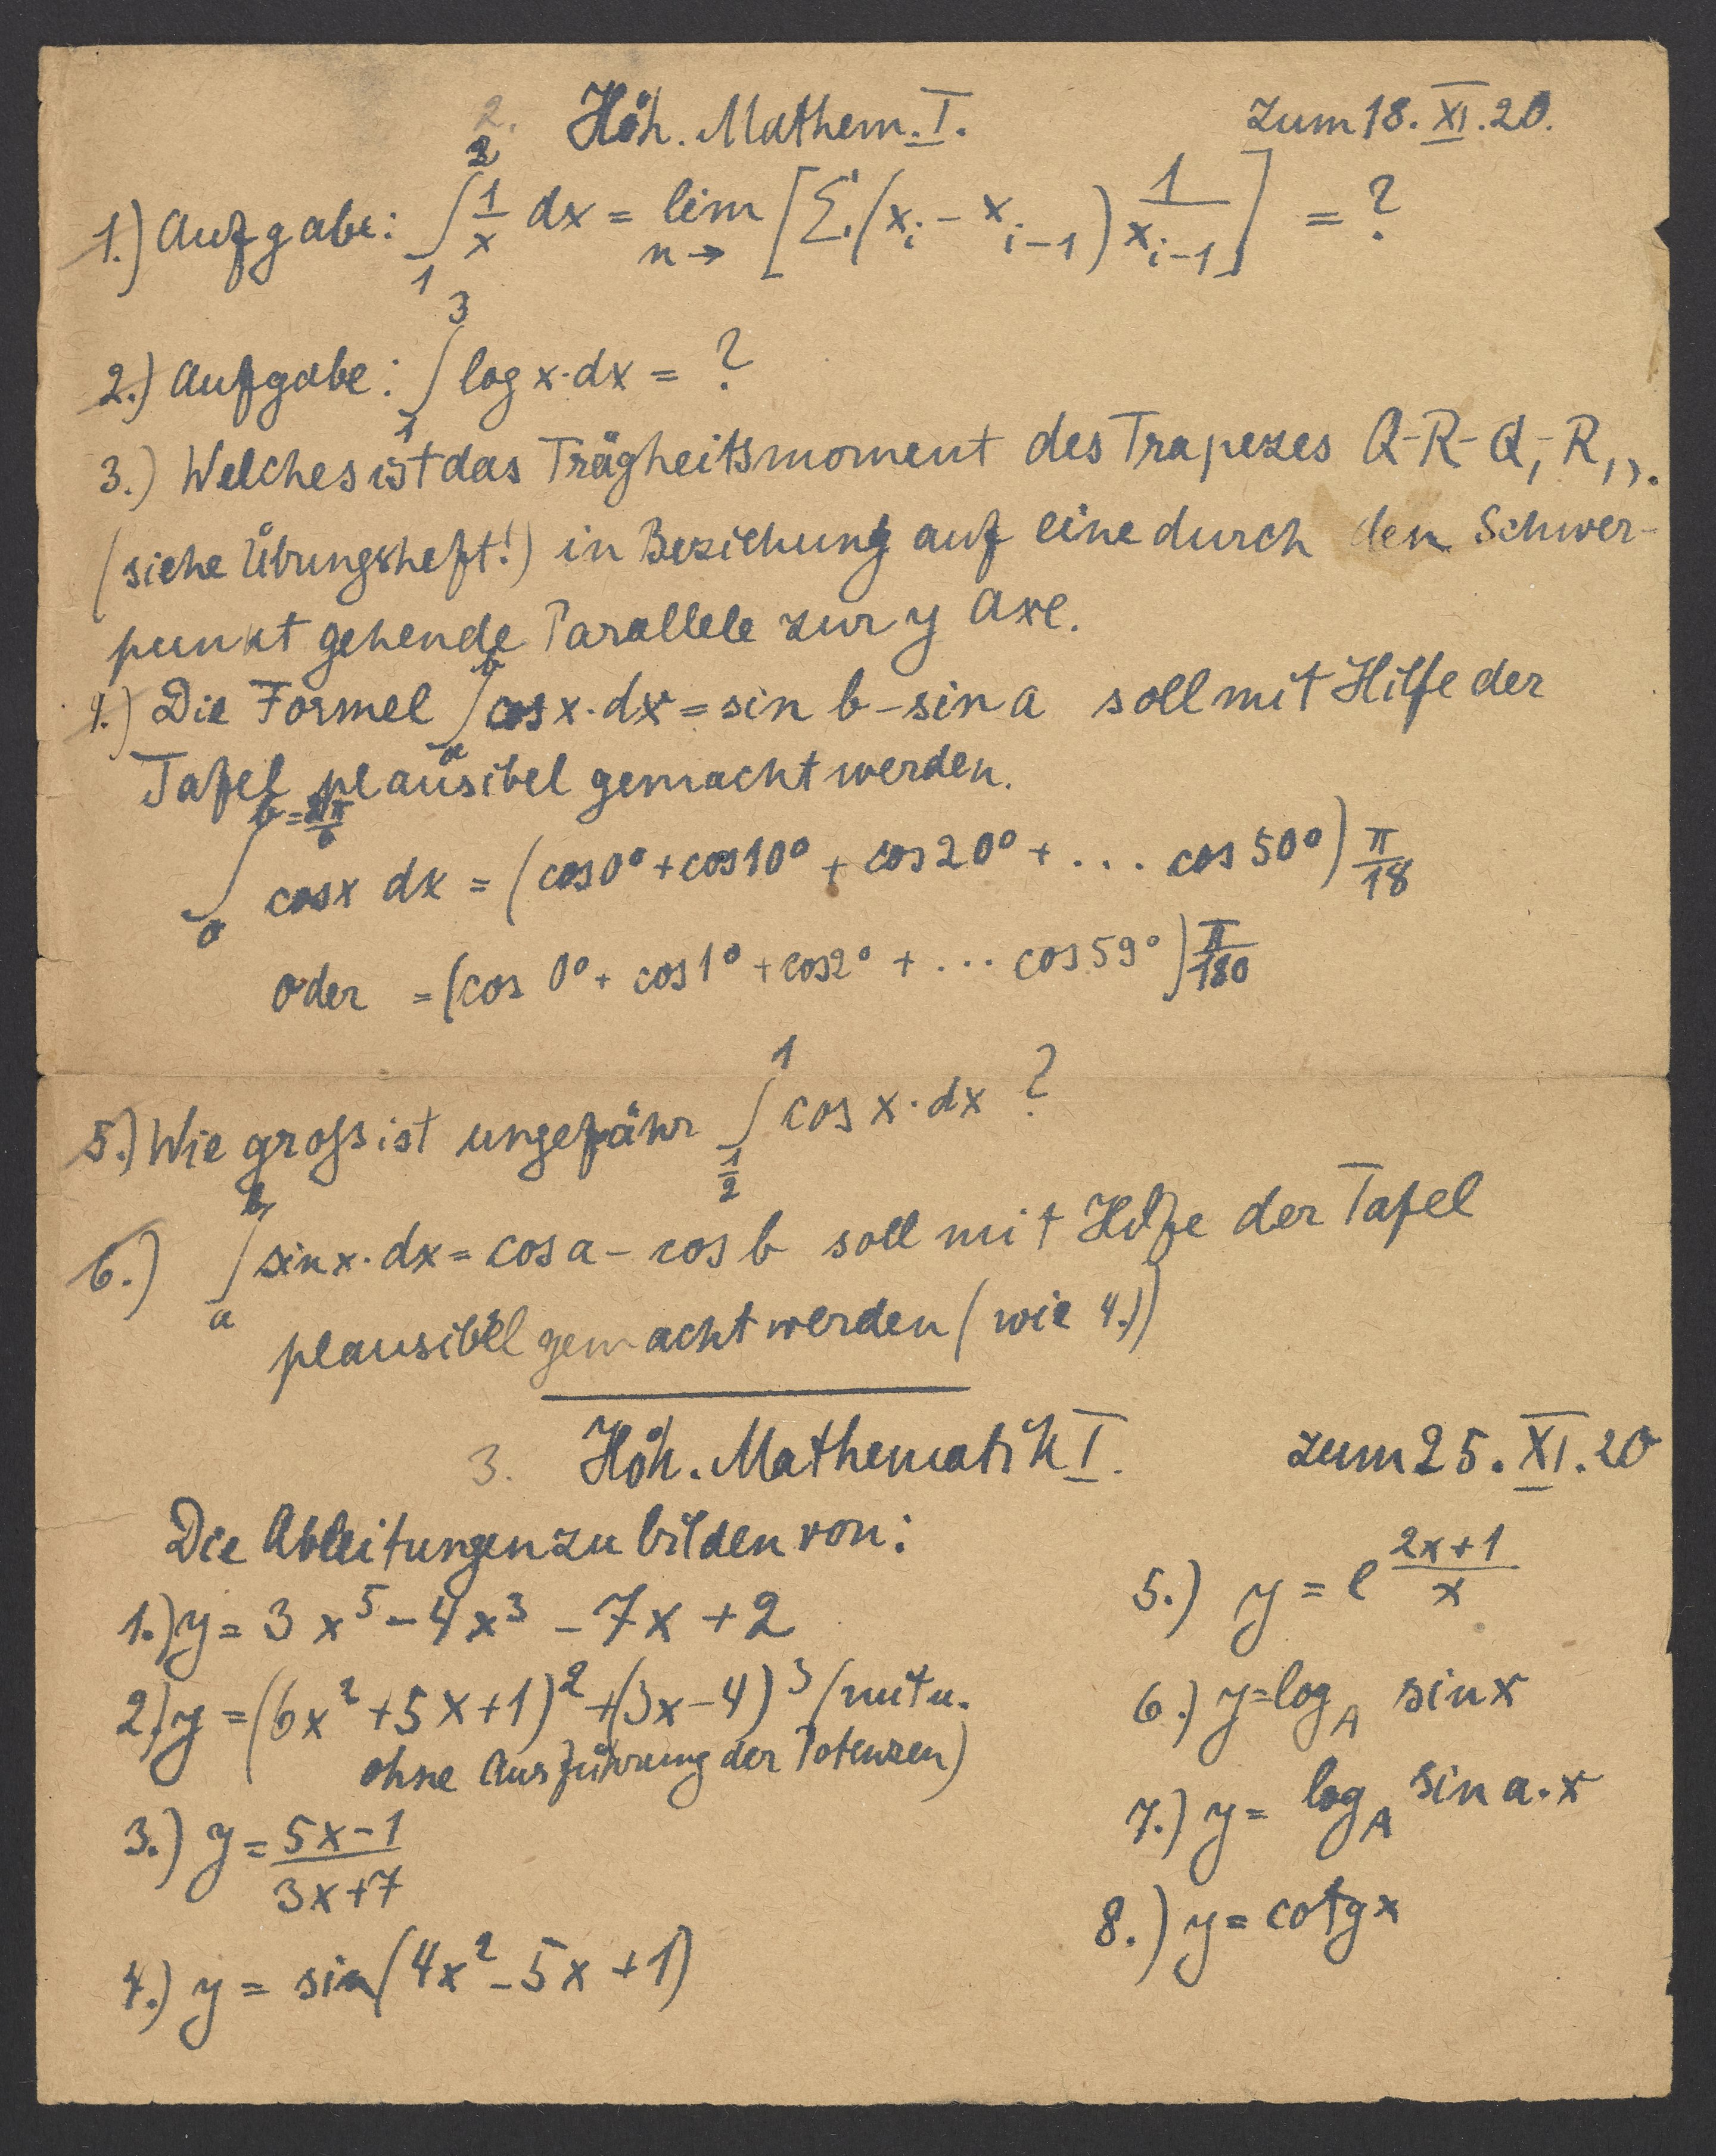 2. Höh. Mathem. I. zum 18. XI. 20.
1.) Aufgabe: ∫₁² 1/x dx = lim n→ [Σ (xᵢ - xᵢ₋₁) 1/xᵢ₋₁] = ?
2.) Aufgabe: ∫₁³ log x · dx = ?
3.) Welches ist das Trägheitsmoment des Trapezes Q-R-Q₁-R₁,.
(siehe Übungsheft!) in Beziehung auf eine durch den Schwer-
punkt gehende Parallele zur y Axe.
4.) Die Formel ∫ₐᵇ cos x · dx = sin b - sin a soll mit Hilfe der
Tafel plausibel gemacht werden.
cos x dx = (cos 0° + cos 10° + cos 20° + ... cos 50°) π/18
oder = (cos 0° + cos 1° + cos 2° + ... cos 59°) π/180
5.) Wie gross ist ungefähr ∫ 1/2 1 cos x · dx ?
6.) ∫ₐᵇ sin x · dx = cos a - cos b soll mit Hilfe der Tafel
plausibel gemacht werden (wie 4.))
3. Höh. Mathematik I. zum 25. XI. 20
Die Ableitungen zu bilden von:
1.) y = 3x⁵ - 4x³ - 7x + 2
2.) y = (6x² + 5x + 1)² + (3x - 4)³ (mit u.
ohne Ausführung der Potenzen)
3.) y = (5x-1)/(3x+7)
4.) y = sin (4x² - 5x + 1)
5.) y = e^((2x+1)/x)
6.) y = log_A sin x
7.) y = log_A sin a · x
8.) y = cotg x